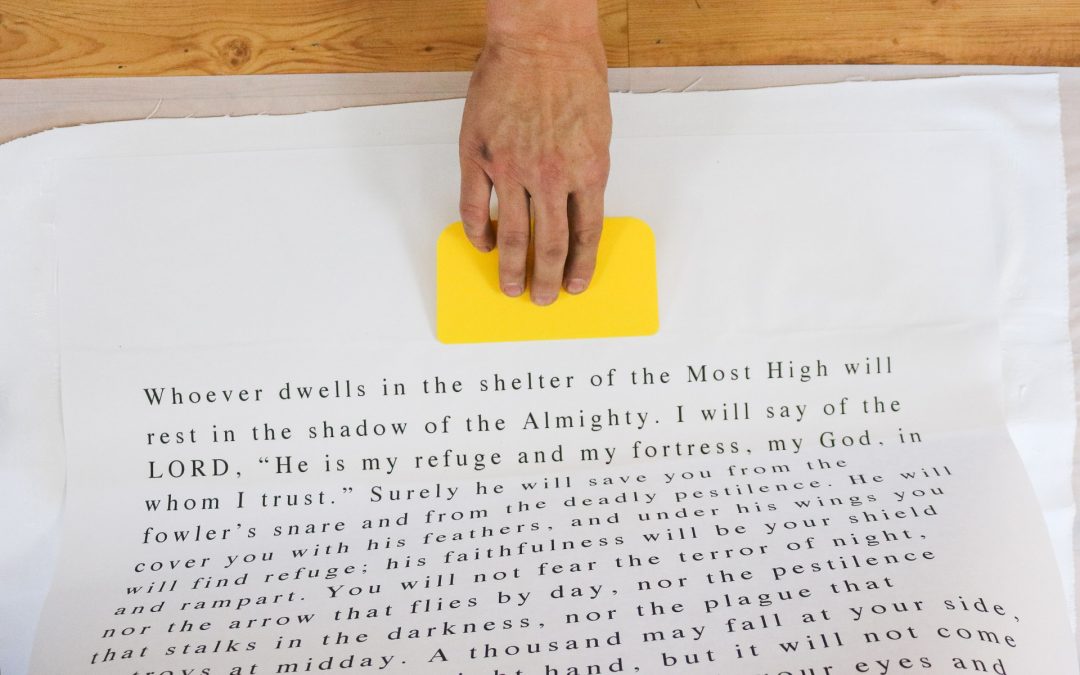 Whoever dwells in the shelter of the Most High will
rest in the shadow of the Almighty. I will say of the
LORD, “He is my refuge and my fortress, my God, in
whom I trust.” Surely he will save you from the
fowler’s snare and from the deadly pestilence. He will
cover you with his feathers, and under his wings you
will find refuge; his faithfulness will be your shield
and rampart. You will not fear the terror of night,
nor the arrow that flies by day, nor the pestilence
that stalks in the darkness, nor the plague that
at midday. A thousand may fall at your side,
hand, but it will not come
your eyes and